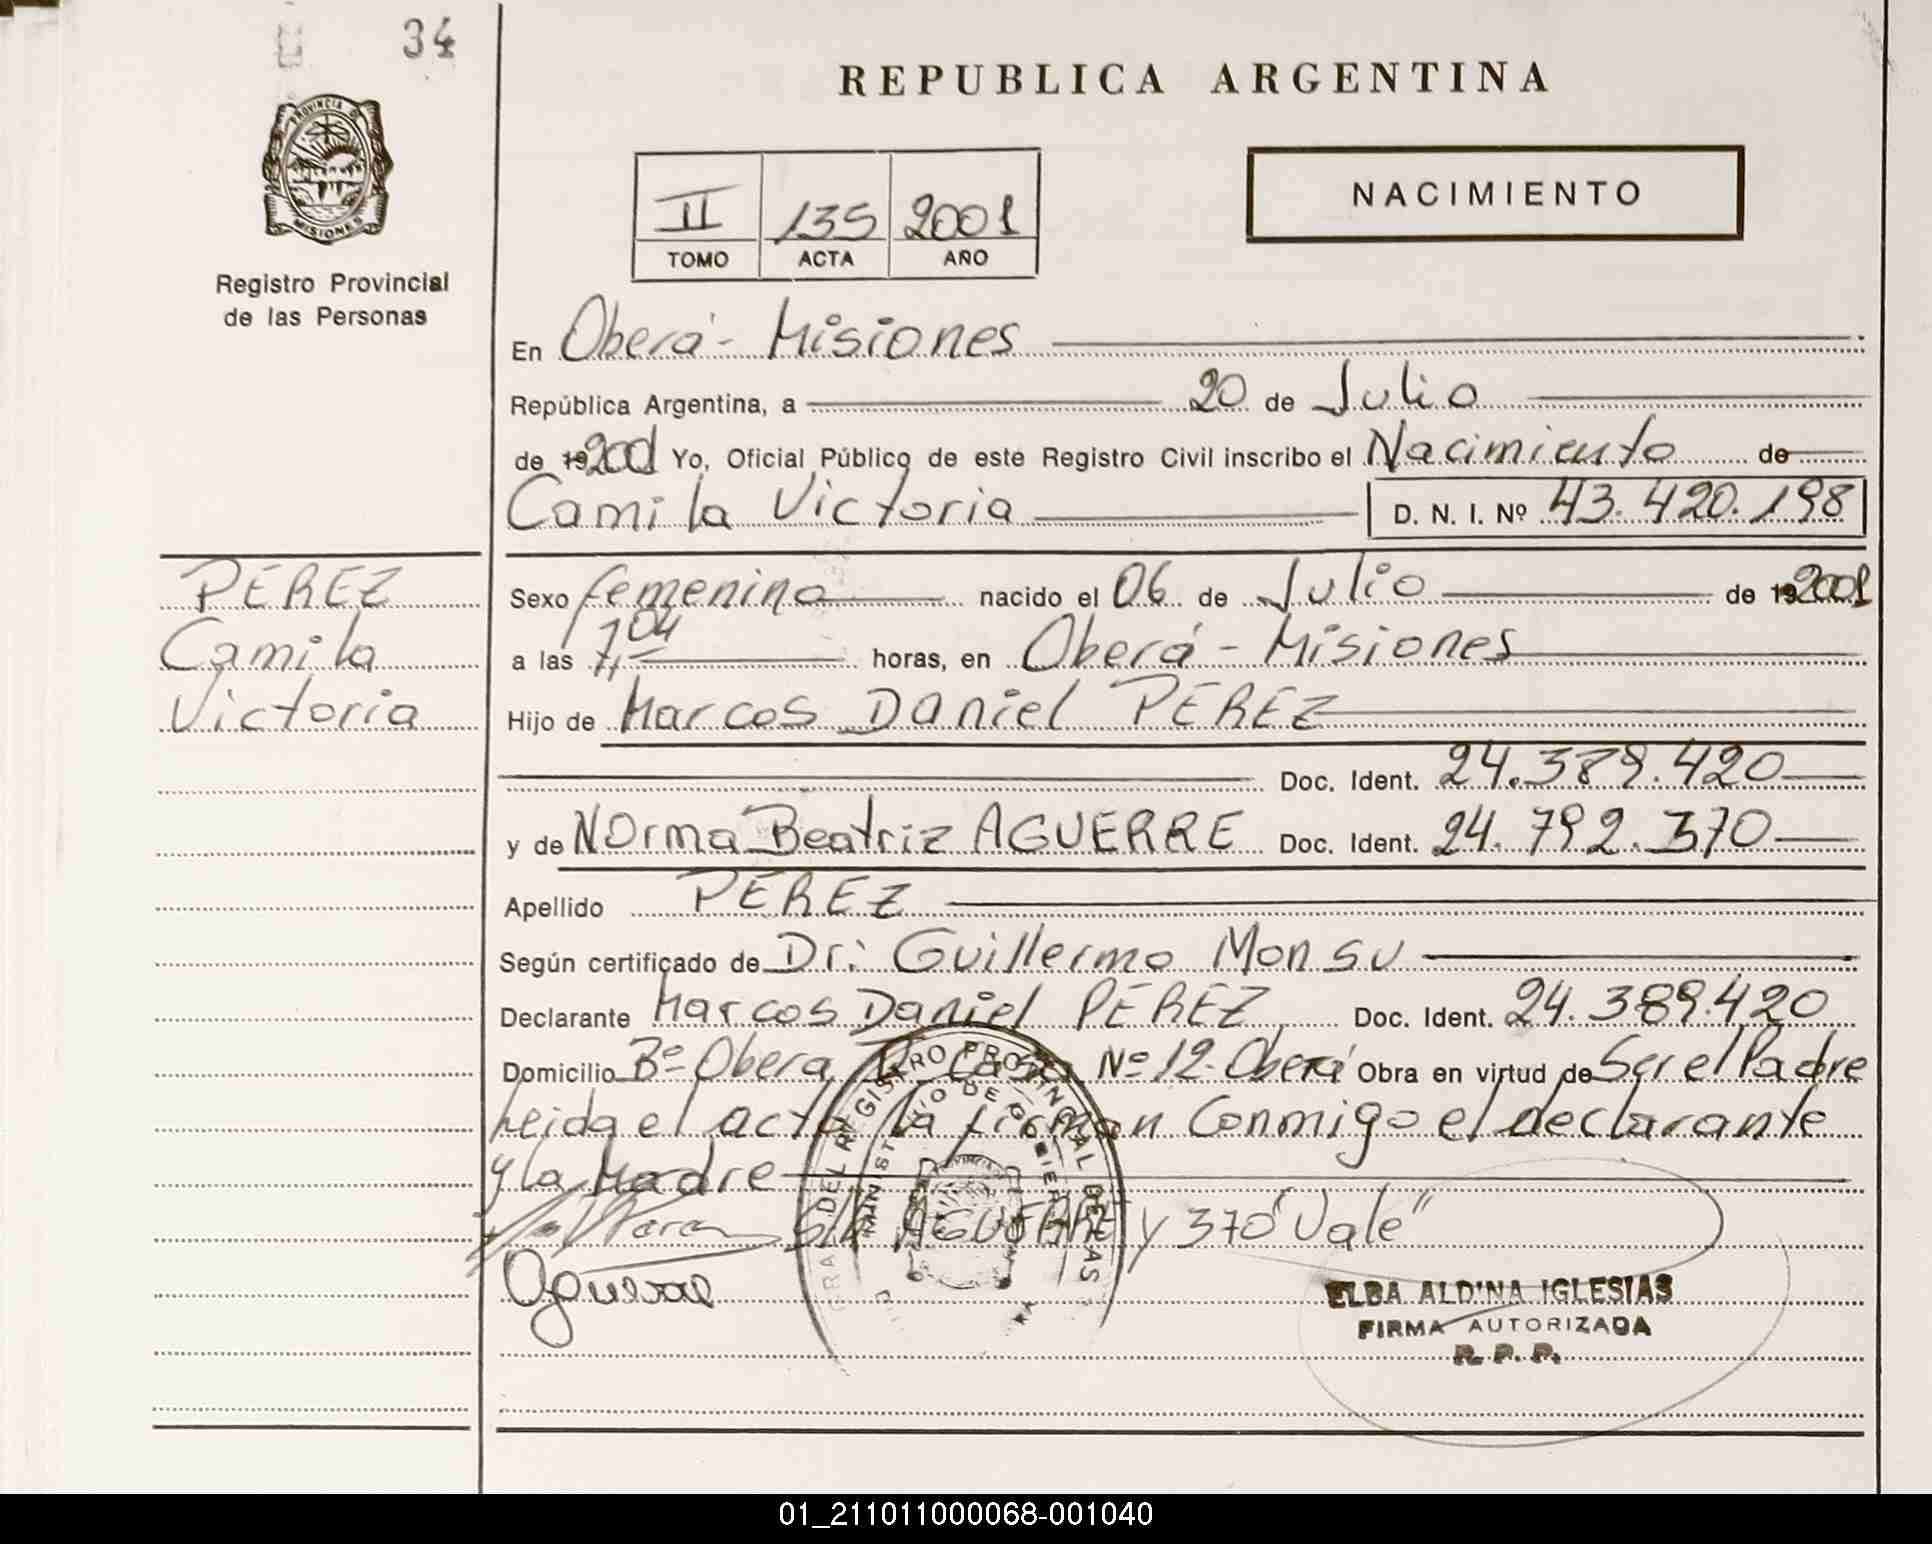 34
REPUBLICA ARGENTINA
PROVINCIA DE
MISIONES
Registro Provincial
de las Personas
II 135 2001
TOMO ACTA AÑO
NACIMIENTO
En Oberá - Misiones
República Argentina, a 20 de Julio
de 19 2001 Yo, Oficial Público de este Registro Civil inscribo el Nacimiento de
Camila Victoria D. N. I. Nº 43.420.198
PEREZ
Camila
Victoria
Sexo femenino nacido el 06 de Julio de 19 2001
a las 7,04 horas, en Oberá - Misiones
Hijo de Marcos Daniel PEREZ
Doc. Ident. 24.389.420
y de Norma Beatriz AGUERRE Doc. Ident. 24.792.370
Apellido PEREZ
Según certificado de Dr: Guillermo Monsu
Declarante Marcos Daniel PEREZ Doc. Ident. 24.389.420
Domicilio Bº Obera Casa Nº 12- Oberá Obra en virtud de Ser el Padre
Leida el acta la firman Conmigo el declarante
y la Madre
S/R AGUERRE y 370 "Vale"
Aguerre
DEL REGISTRO PROVINCIAL DE LAS
MINISTERIO DE GOBIERNO
ELBA ALDINA IGLESIAS
FIRMA AUTORIZADA
R. P. P.
01_211011000068-001040